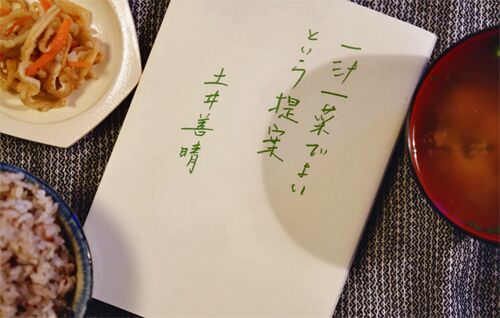 一汁一菜でよい
という提案
土井善晴